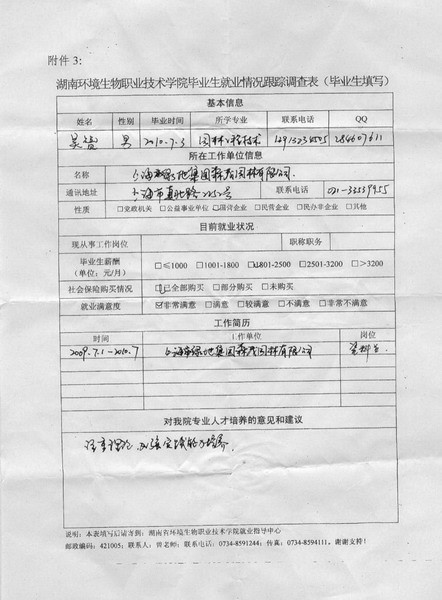 附件 3:
湖南环境生物职业技术学院毕业生就业情况跟踪调查表（毕业生填写）
基本信息
姓名 性别 毕业时间 所学专业 联系电话 QQ
男 2010.7.3 园林工程技术 284607611
所在工作单位信息
名称 上海市绿地集团森茂园林有限公司
通讯地址 上海市 号 联系电话
性质 □党政机关 □公益事业单位 ☑国资企业 □民营企业 □民办非企业 □其他
目前就业状况
现从事工作岗位 职称职务
毕业生薪酬
（单位：元/月） □≤1000 □1001-1800 ☑1801-2500 □2501-3200 □>3200
社会保险购买情况 ☑已全部购买 □部分购买 □未购买
就业满意度 ☑非常满意 □满意 □较满意 □不满意 □非常不满意
工作简历
时间 工作单位 岗位
2009.7.1-2010.7 上海市绿地集团森茂园林有限公司 资料员
对我院专业人才培养的意见和建议
注重理论，加强实践能力培养
说明：本表填写后请寄到：湖南省环境生物职业技术学院就业指导中心
邮政编码：421005；联系人：曾老师；联系电话：0734-8591244；传真：0734-8594111。谢谢支持！